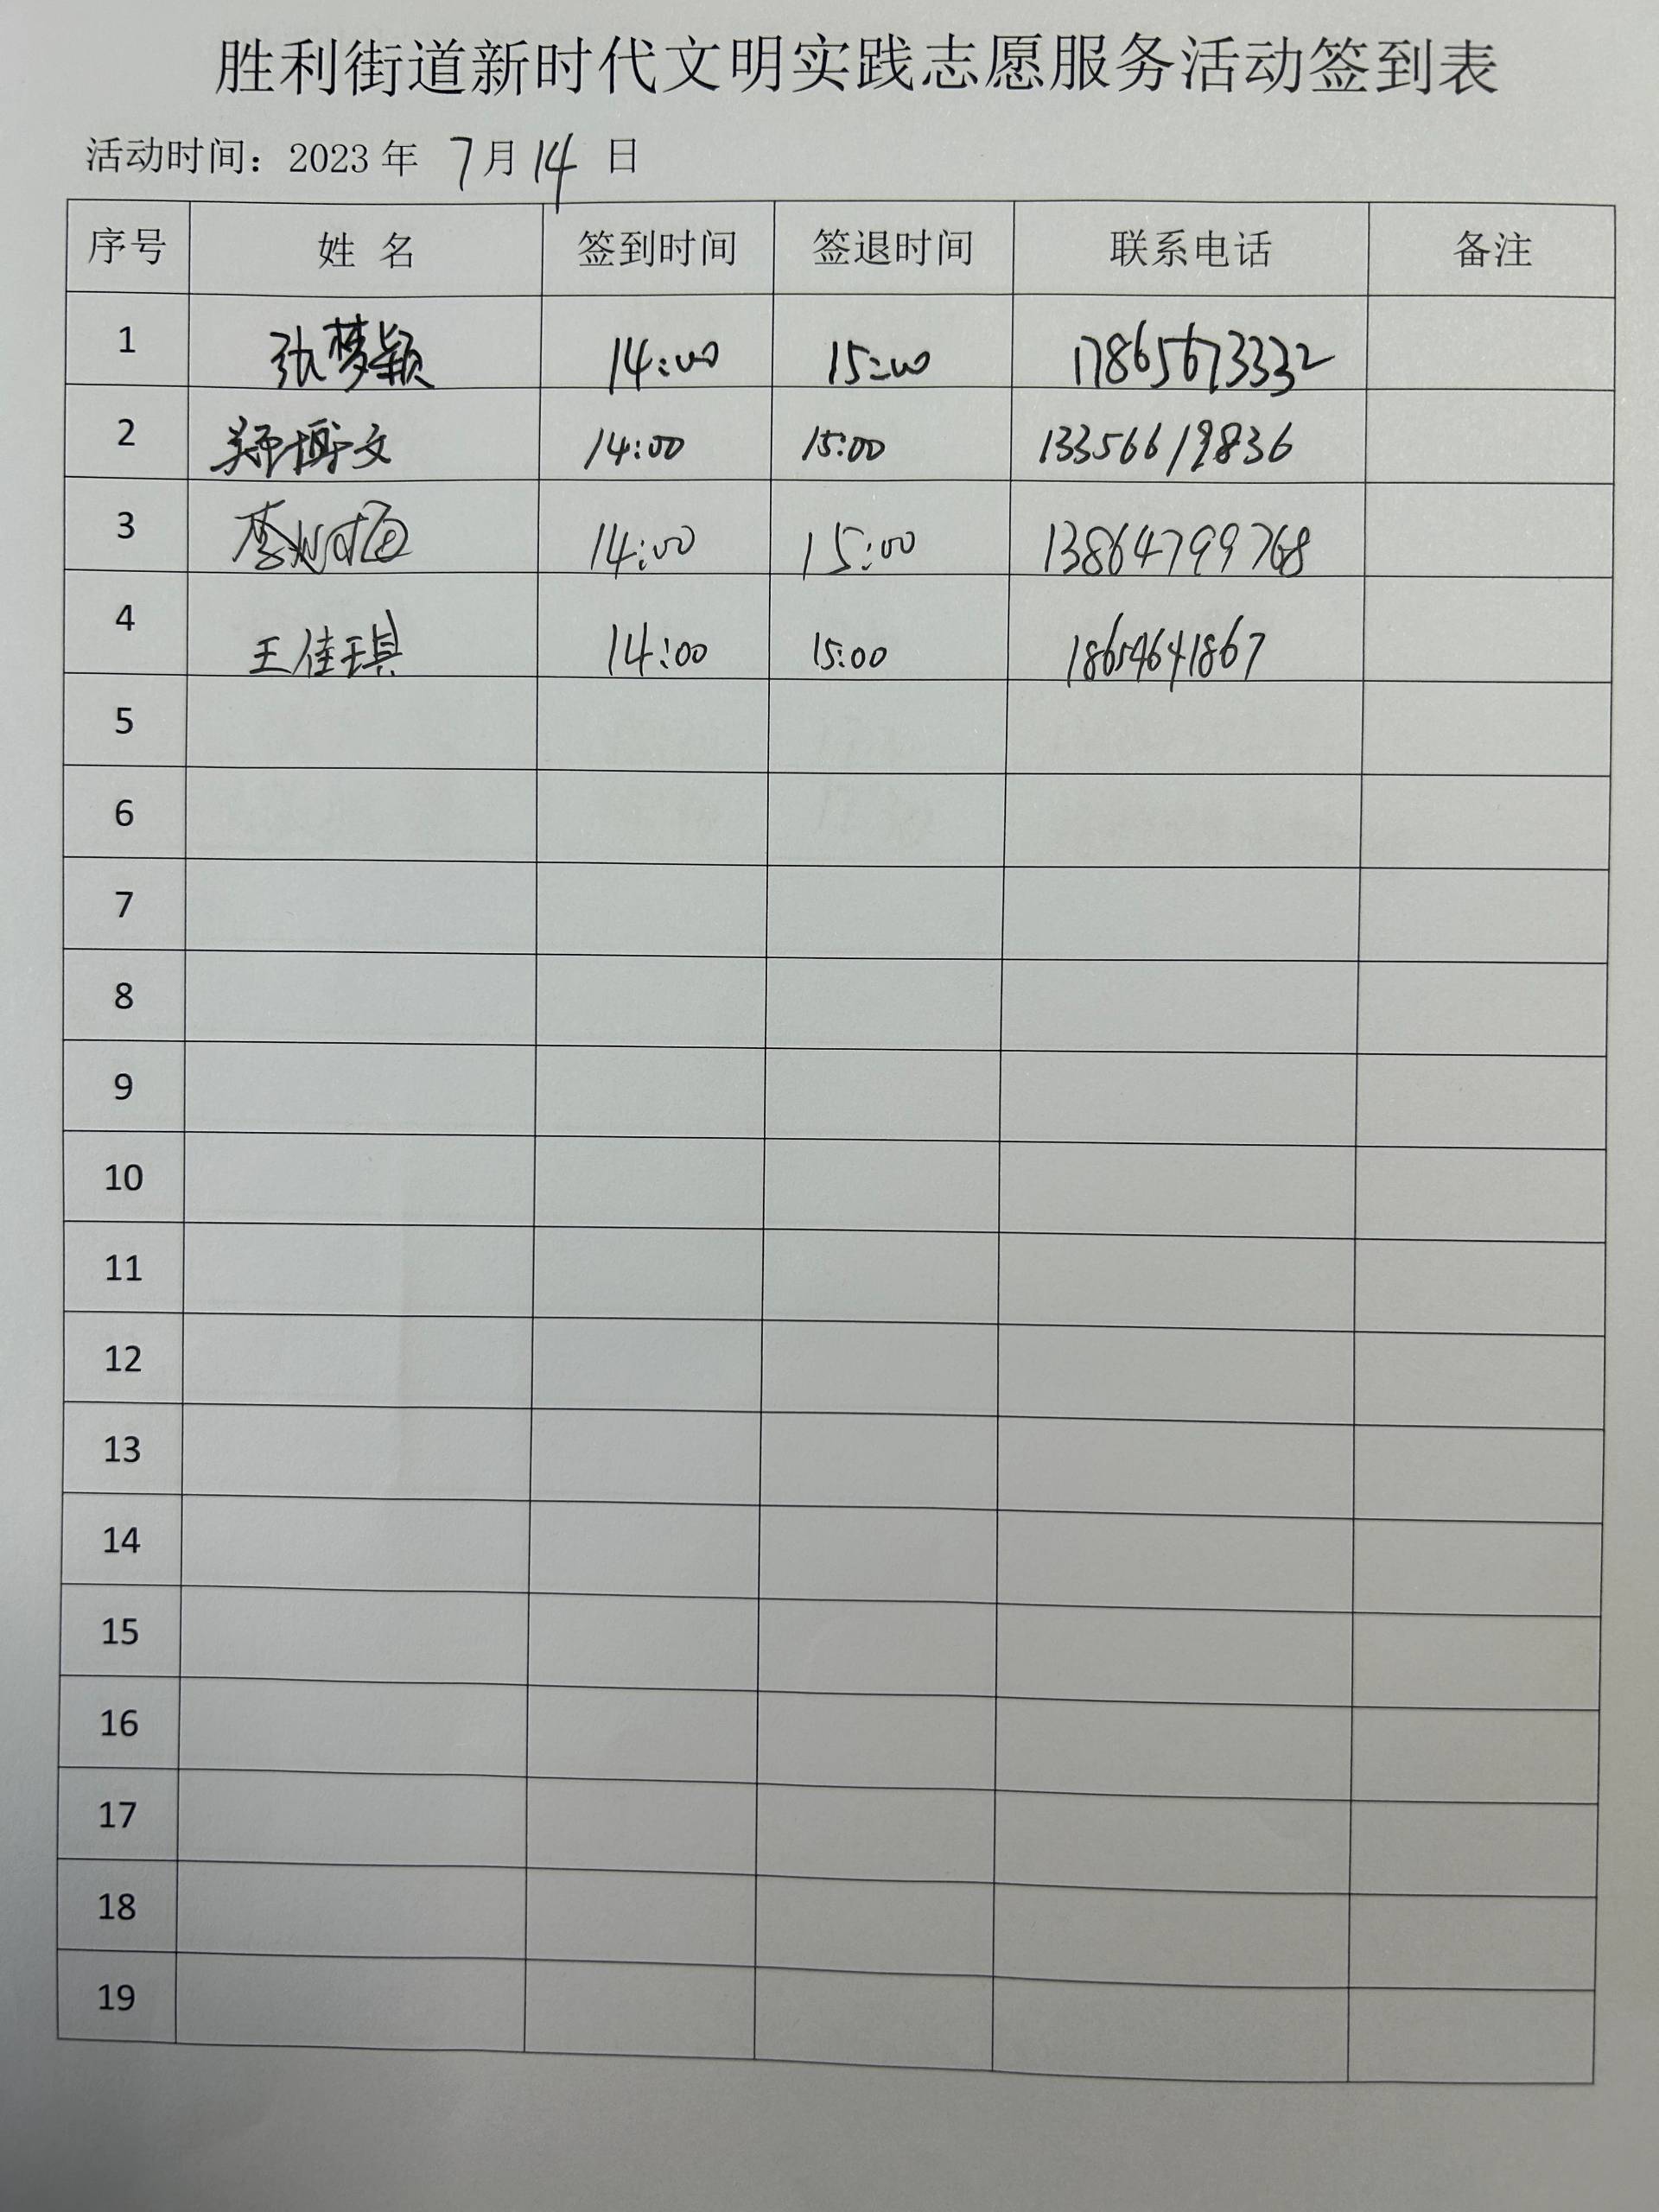 胜利街道新时代文明实践志愿服务活动签到表
活动时间：2023 年 7 月 14 日
序号 姓 名 签到时间 签退时间 联系电话 备注
1 张梦颖 14:00 15:00 17865673332
2 郑博文 14:00 15:00 13356619836
3 李 14:00 15:00 13864799768
4 王佳琪 14:00 15:00 18654641867
5
6
7
8
9
10
11
12
13
14
15
16
17
18
19